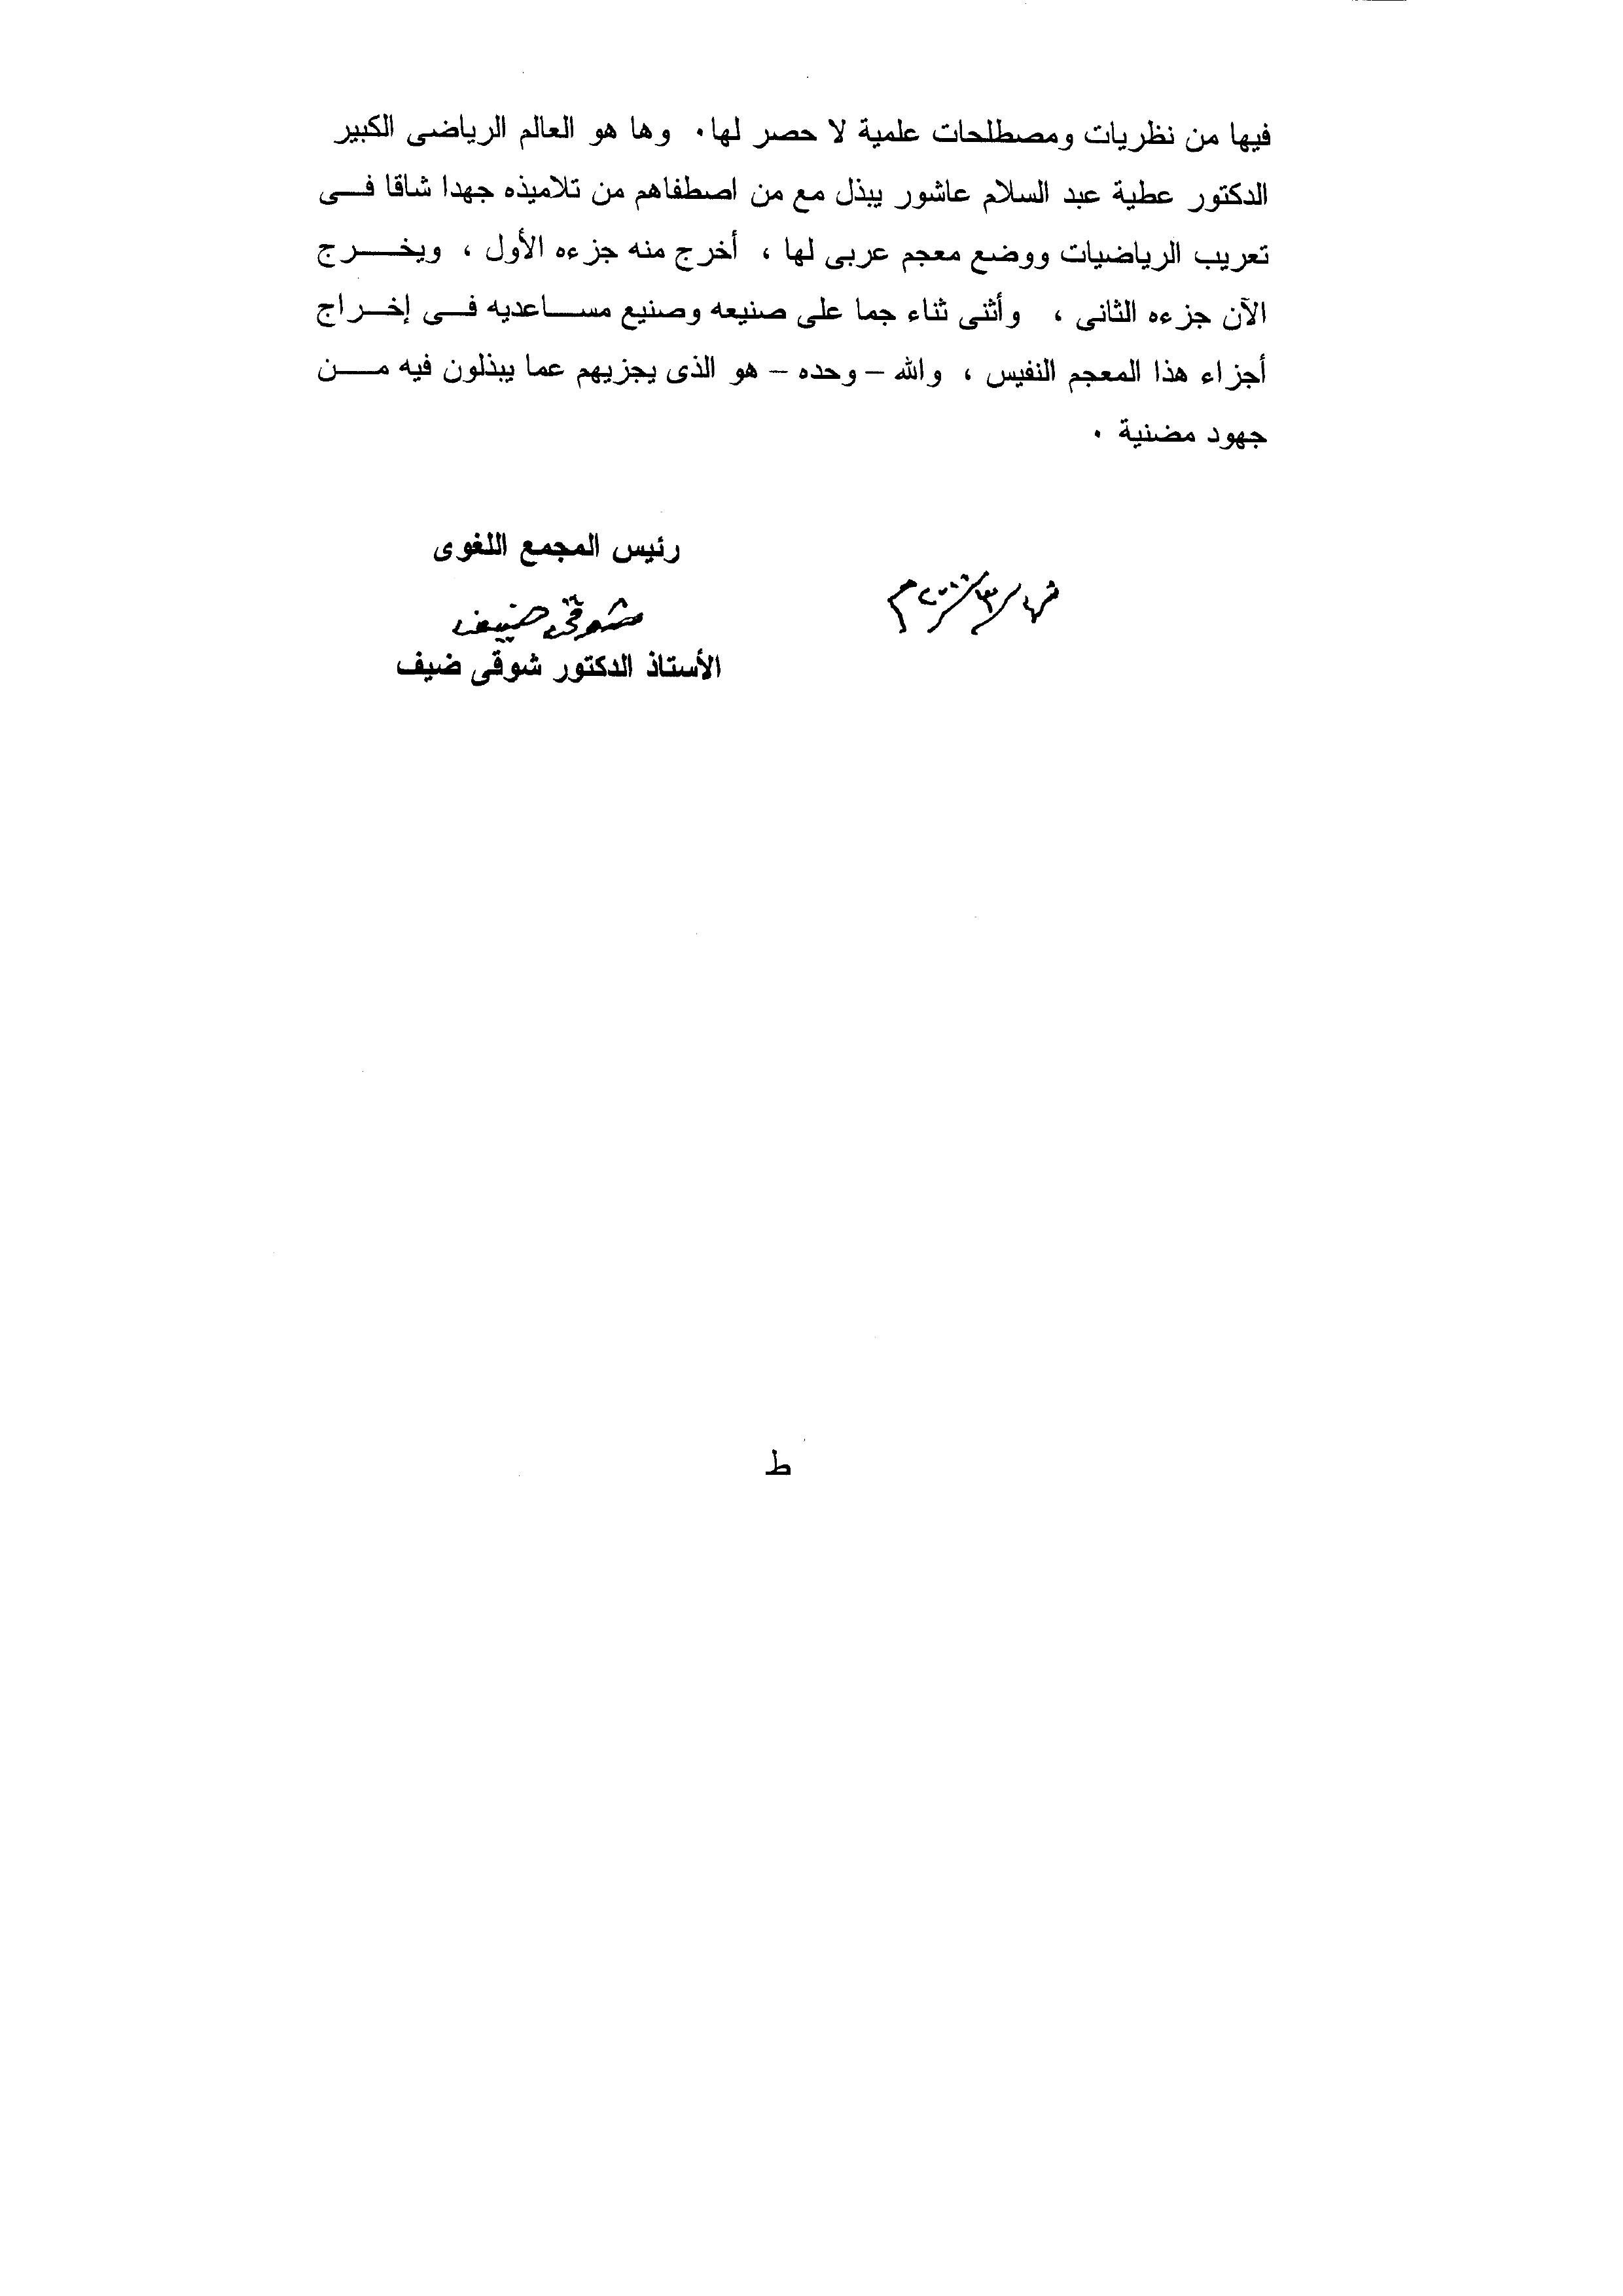 فيها من نظريات ومصطلحات علمية لا حصر لها٠ وها هو العالم الرياضى الكبير
الدكتور عطية عبد السلام عاشور يبذل مع من اصطفاهم من تلاميذه جهدا شاقا فـــى
تعريب الرياضيات ووضع معجم عربى لها ، أخرج منه جزءه الأول ، ويخـــــرج
الآن جزءه الثانى ، وأثنى ثناء جما على صنيعه وصنيع مســـاعديه فـــى إخـــراج
أجزاء هذا المعجم النفيس ، والله – وحده – هو الذى يجزيهم عما يبذلون فيه مــــن
جهود مضنية ٠
رئيس المجمع اللغوى
شوقى ضيف
الأستاذ الدكتور شوقى ضيف
ط